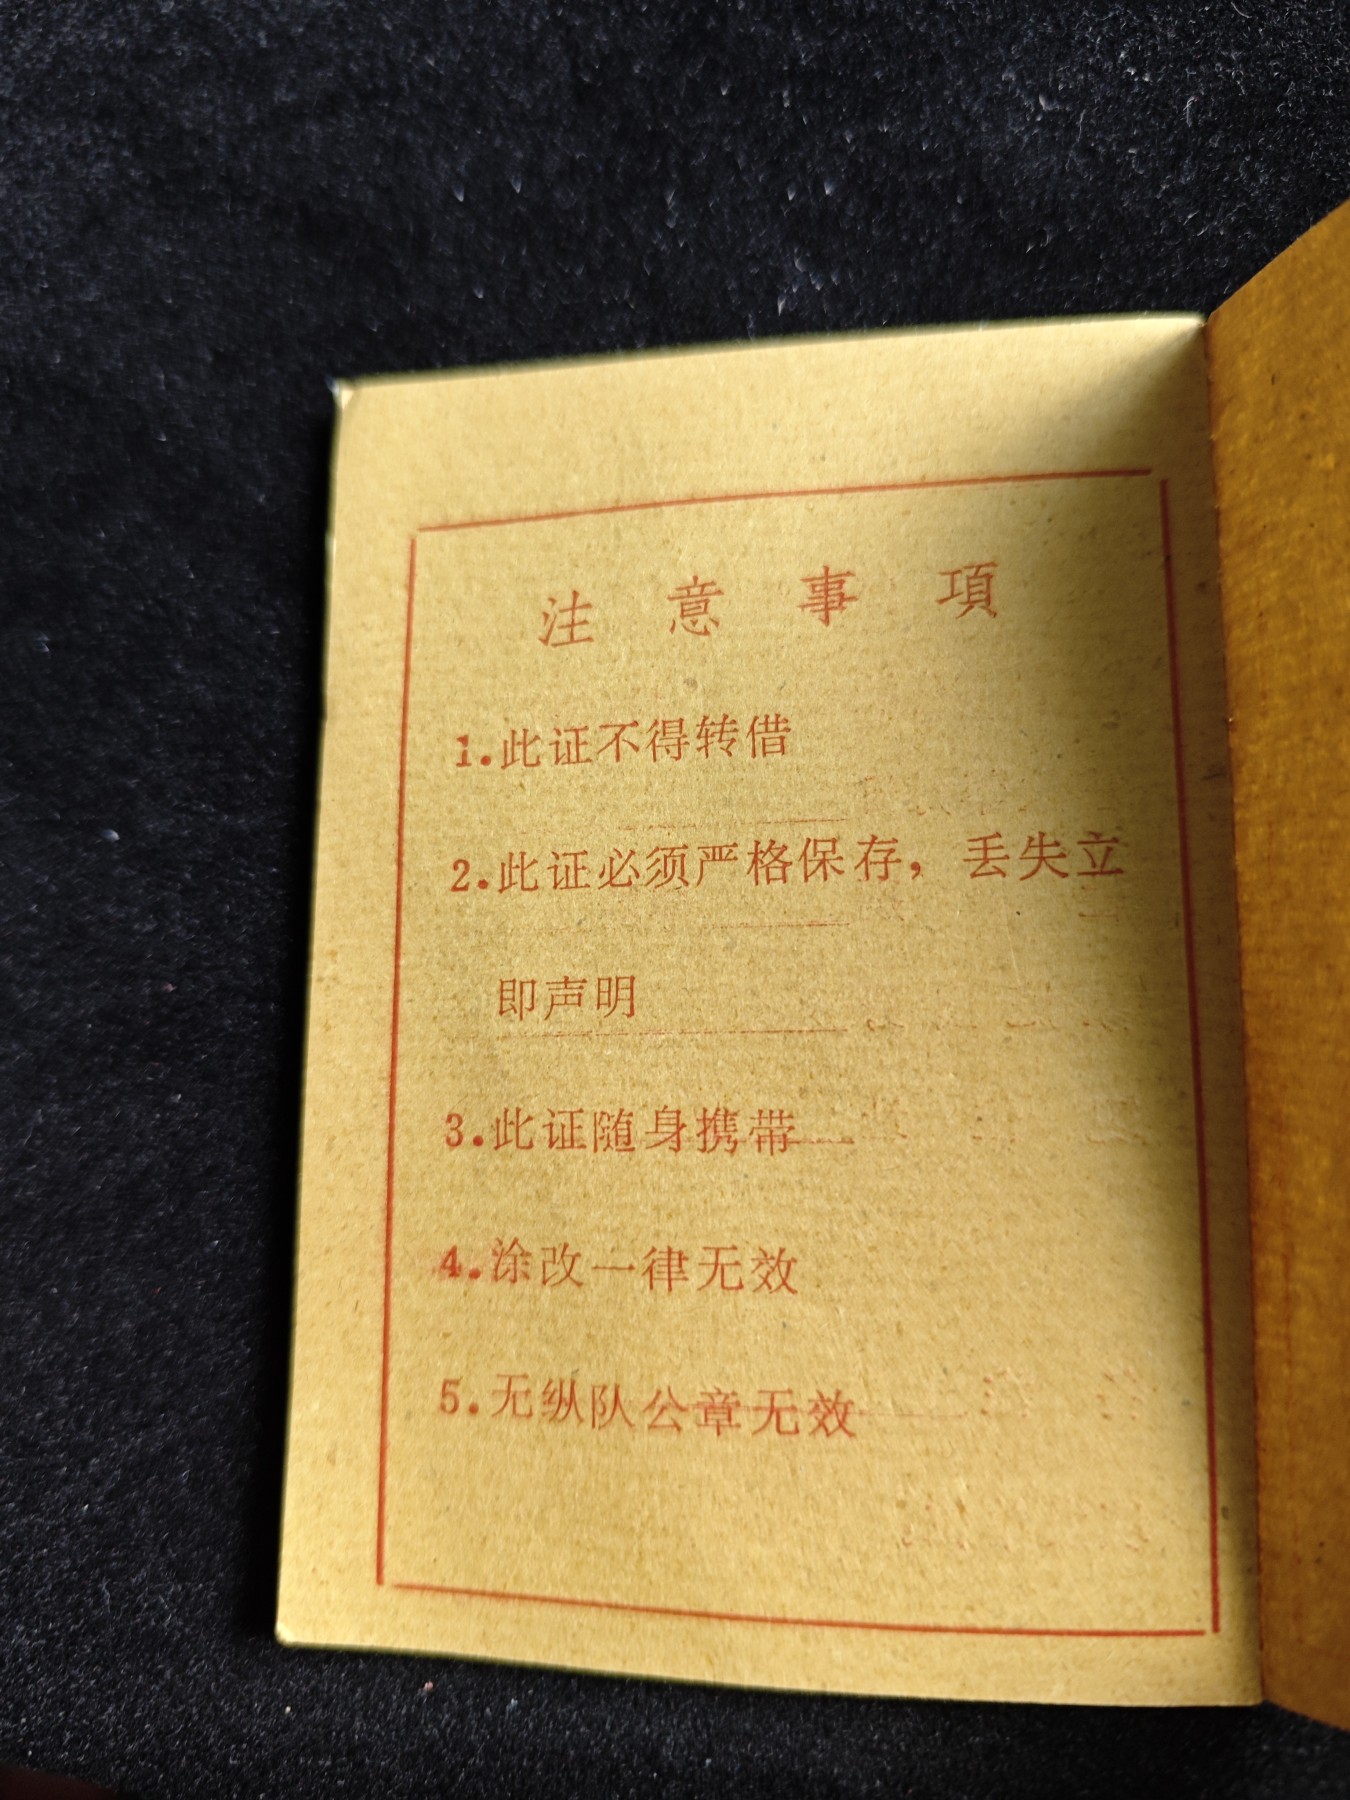 注意事項
1.此证不得转借
2.此证必须严格保存，丢失立
即声明
3.此证随身携带
4.涂改一律无效
5.无纵队公章无效